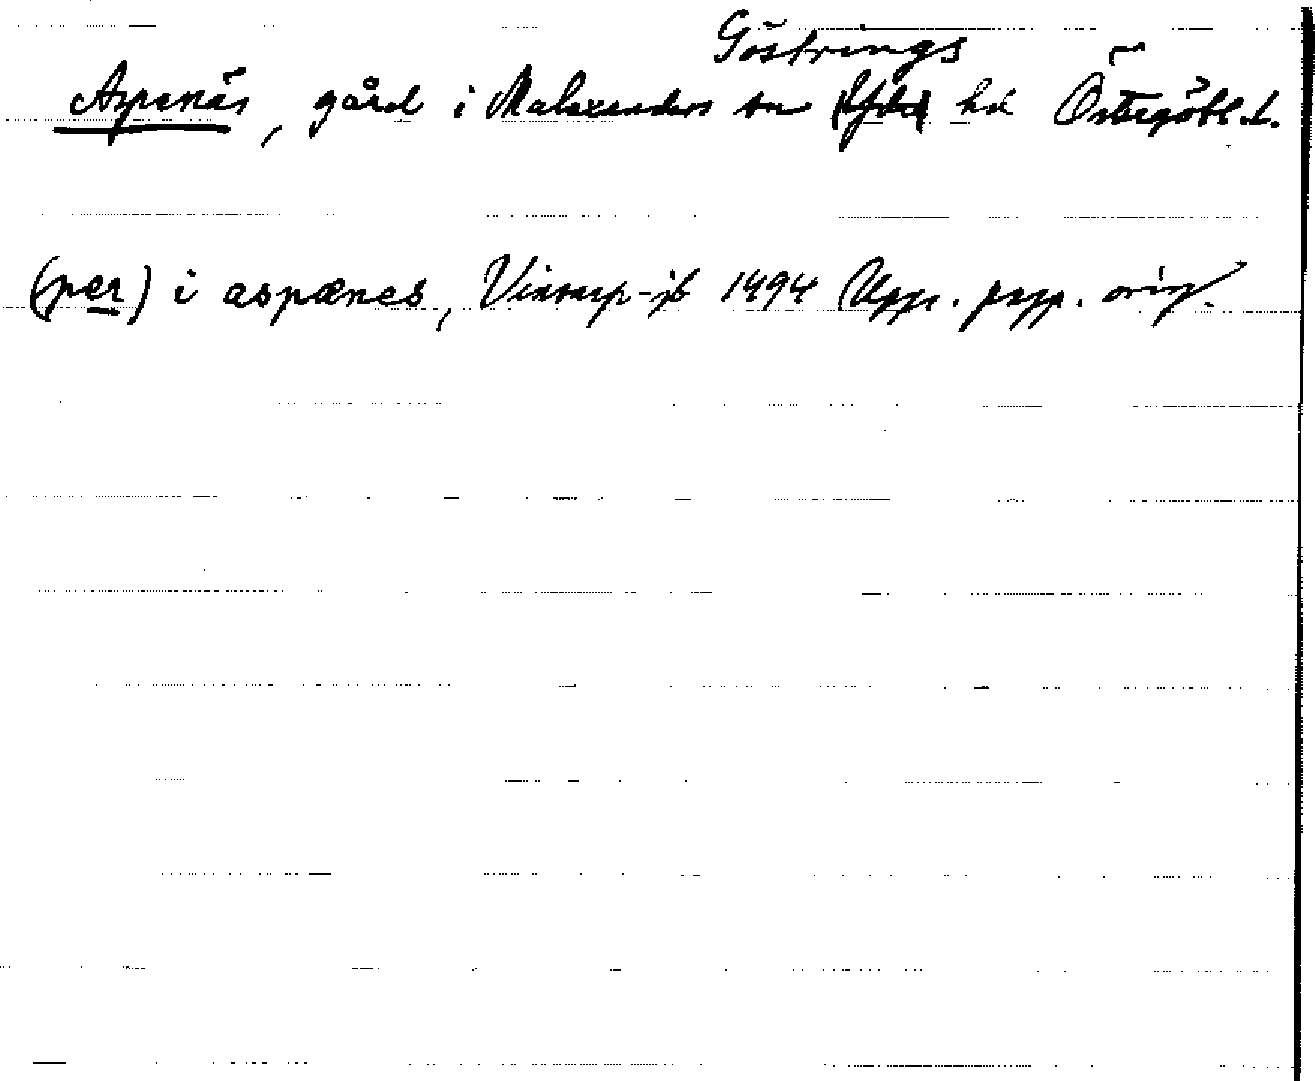 Göstrings
Aspenäs, gård i Malexanders sn (Ydre) hd Östergötl. l.
(per) i aspænes, Vinstorp-jb 1494 Upps. papp. orig.